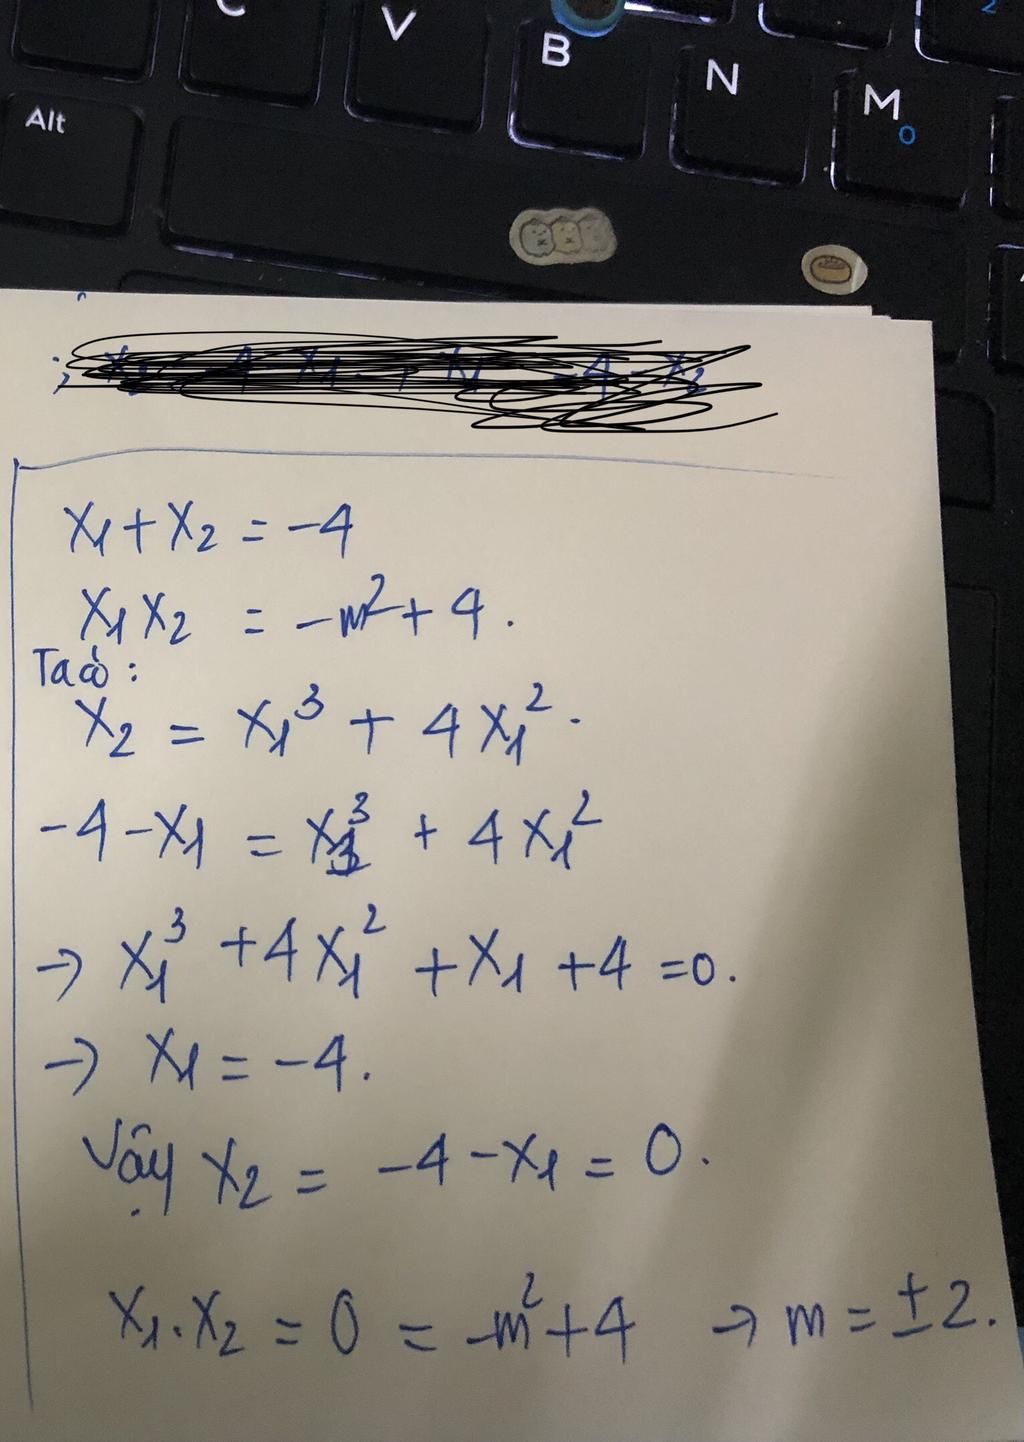 C
V
B
N
M
o
2
Alt
x₁+x₂ = -4
x₁x₂ = -m²+4.
Ta có:
x₂ = x₁³ + 4x₁².
-4-x₁ = x₁³ + 4x₁²
→ x₁³ +4x₁² +x₁ +4 =0.
→ x₁ = -4.
Vậy x₂ = -4-x₁ = 0.
x₁.x₂ = 0 = -m²+4 → m = ±2.